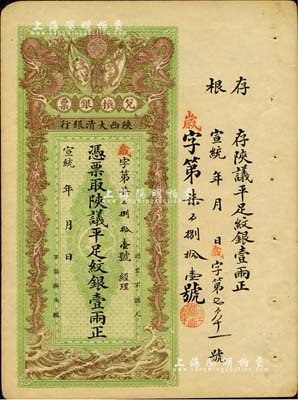 上海陽明拍賣
存根
存陝議平足紋銀壹兩正
宣統 年 月 日 歲字第
號
歲字第柒百捌拾壹號
兌換銀票
陝西大清銀行
歲字第柒百捌拾壹號 經理
憑票取陝議平足紋銀壹兩正
宣統 年 月 日
上海陽明拍賣